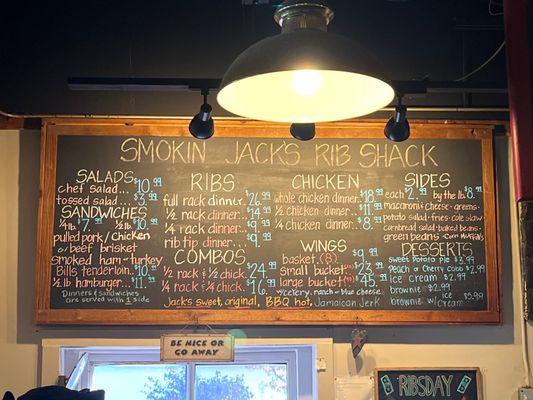 SMOKIN JACK'S RIB SHACK
SALADS
chef salad... $10.99
tossed salad... $3.99
SANDWICHES
1/4 lb $7.99
pulled pork/chicken
or beef brisket
smoked ham-turkey
Bills tenderloin. $10.99
1/2 lb. hamburger... $11.99
Dinners & sandwiches
are served with 1 side
RIBS
full rack dinner. $26.99
1/2 rack dinner. $14.99
1/4 rack dinner. $9.99
rib tip dinner... $9.99
COMBOS
1/2 rack & 1/2 chick $24.99
1/4 rack & 1/4 chick $16.99
Jack's sweet, original, BBQ hot,
CHICKEN
whole chicken dinner. $18.99
1/2 chicken dinner. $11.99
1/4 chicken dinner. $8.99
WINGS
basket (8) $9.99
small bucket $23.99
large bucket $45.99
w/celery, ranch or blue cheese
Jamaican Jerk
SIDES
each $2.99 by the lb. $8.99
macaroni & cheese - greens -
potato salad - fries - cole slaw
cornbread salad - baked beans
green beans - corn muffins
DESSERTS
sweet potato pie $3.99
peach or cherry cobb $2.99
ice cream $2.99
brownie $2.99
brownie w/ ice cream $5.99
BE NICE OR
GO AWAY
RIBSDAY